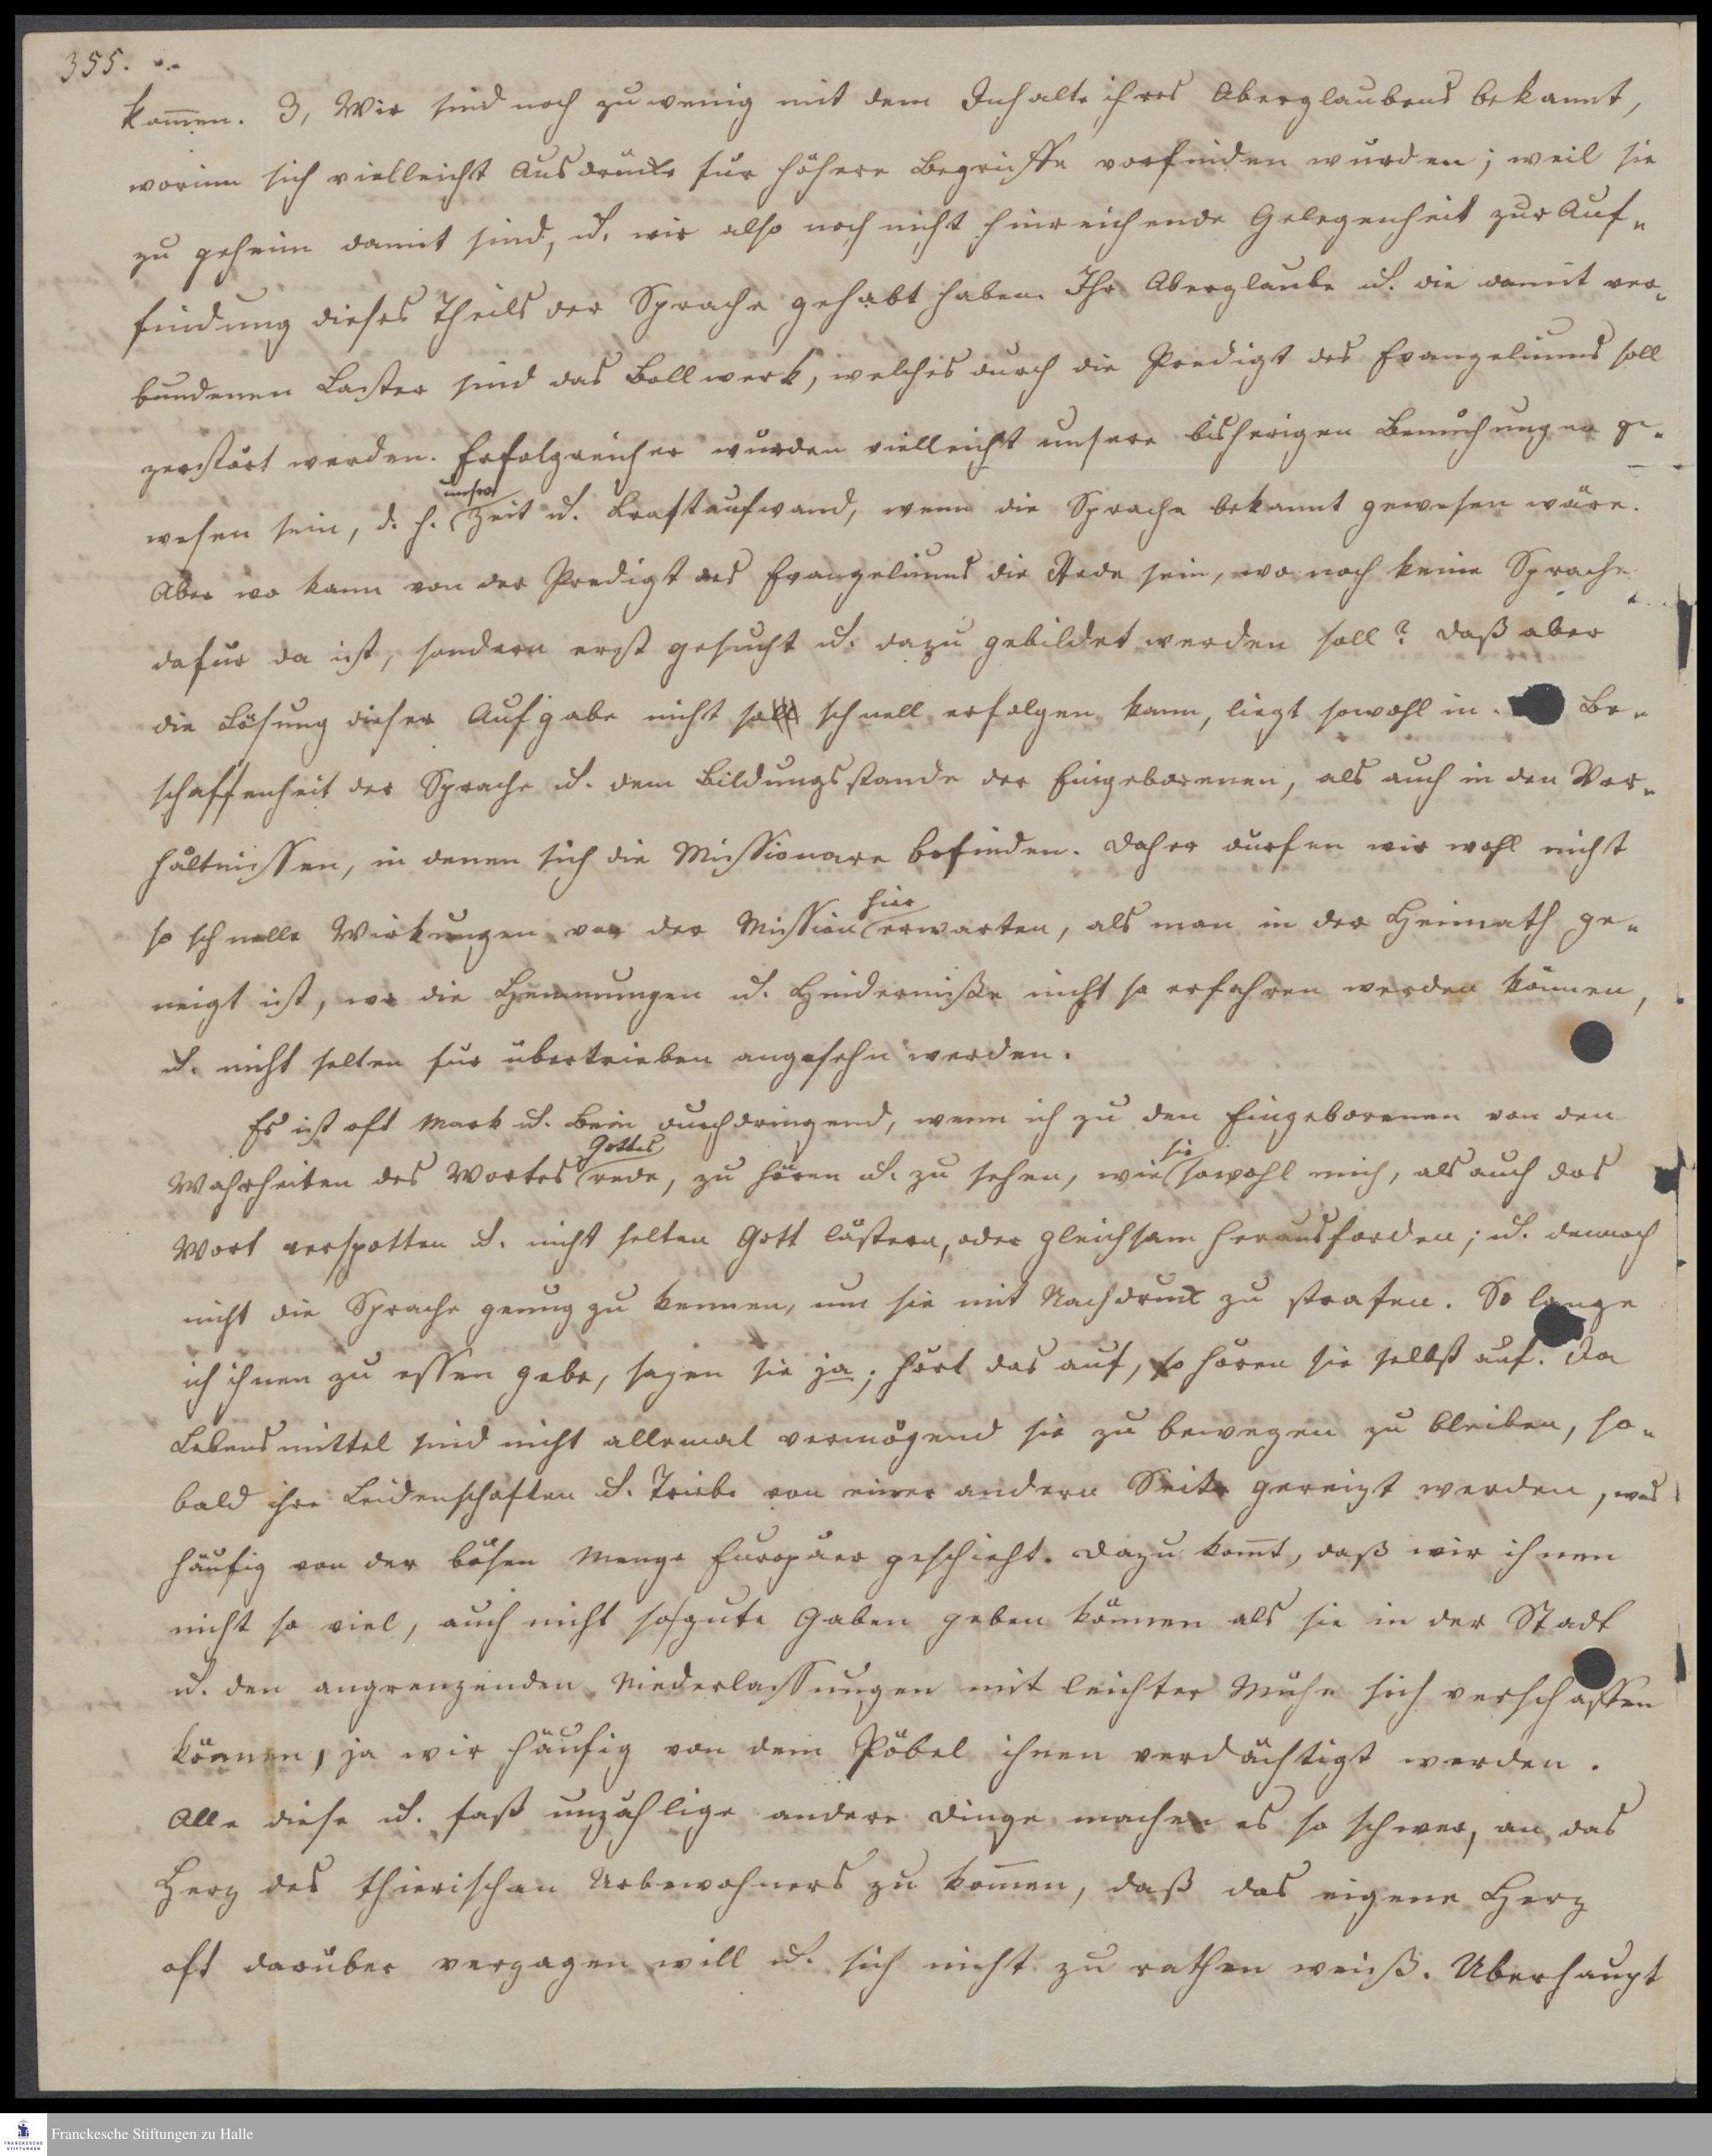 355.
kom̅en. 3, Wir sind noch zu wenig mit dem Inhalte ihres Aberglaubens bekannt,
worinn sich vielleicht Ausdrücke für höhere Begriffe vorfinden würden; weil sie
zu geheim damit sind, u. wir also noch nicht hinreichende Gelegenheit zur Auf-
findung dieses Theils der Sprache gehabt haben. Ihr Aberglaube u. die damit ver-
bundenen Laster sind das Bollwerk, welches durch die Predigt des Evangeliums soll
zerstört werden. Erfolgreicher würden vielleicht unsere bisherigen Bemühungen ge-
wesen sein, d. h. unser Zeit u. Kraftaufwand, wenn die Sprache bekannt gewesen wäre.
Aber wo kann von der Predigt des Evangeliums die Rede sein, wo noch keine Sprache
dafür da ist, sondern erst gesucht u. dazu gebildet werden soll? Daß aber
die Lösung dieser Aufgabe nicht soll schnell erfolgen kann, liegt sowohl in Be-
schaffenheit der Sprache u. dem Bildungsstande der Eingeborenen, als auch in den Ver-
hältnissen, in denen sich die Missionare befinden. Daher dürfen wir wohl nicht
so schnelle Wirkungen von der Mission hier erwarten, als man in der Heimath ge-
neigt ist, wo die Hemmungen u. Hinderniße nicht so erfahren werden können,
u. nicht selten für übertrieben angesehn werden.
Es ist oft Mark u. Bein durchdringend, wenn ich zu den Eingeborenen von den
Wahrheiten des Wortes Gottes rede, zu hören u. zu sehen, wie sie sowohl mich, als auch das
Wort verspotten u. nicht selten Gott lästern, oder gleichsam herausfordern; u. dennoch
nicht die Sprache genug zu kennen, um sie mit Nachdruck zu strafen. So lange
ich ihnen zu essen gebe, sagen sie ja; hört das auf, so hören sie selbst auf. Da
Lebensmittel sind nicht allemal vermögend sie zu bewegen zu bleiben, so-
bald ihre Leidenschaften u. Triebe von einer andern Seite gereizt werden, was
häufig von der bösen Menge Europäer geschieht. Dazu kom̅t, daß wir ihnen
nicht so viel, auch nicht so gute Gaben geben können als sie in der Stadt
u. den angrenzenden Niederlassungen mit leichter Mühe sich verschaffen
können, ja wir häufig von dem Pöbel ihnen verdächtigt werden.
Alle diese u. fast unzählige andere Dinge machen es so schwer, an das
Herz des thierischen Urbewohners zu kom̅en, daß das eigene Herz
oft darüber verzagen will u. sich nicht zu rathen weiß. Überhaupt
Franckesche Stiftungen zu Halle